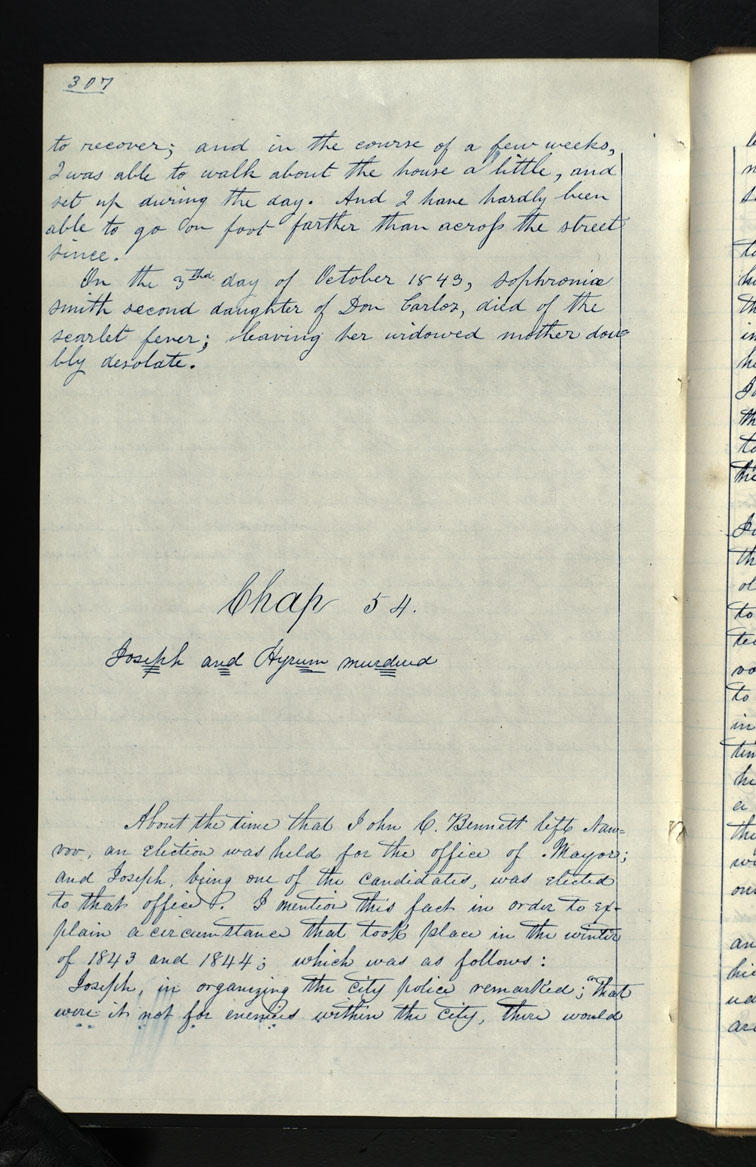 307
to recover; and in the course of a few weeks,
I was able to walk about the house a little, and
set up during the day. And I have hardly been
able to go on foot farther than across the street
since.
On the 3thd day of October 1843, sophronia
smith second daughter of Don Carlos, died of the
scarlet fever; leaving her widowed mother dou
bly desolate.
Chap 54.
Joseph and Hyrum murdered
About the time that John C. Bennett left Nau=
voo, an election was held for the office of Mayor;
and Joseph, being one of the candidates, was elected
to that office. I mention this fact in order to ex-
plain a circumstance that took place in the winter
of 1843 and 1844; which was as follows:
Joseph, in organizing the city police remarked; "That
were it not for enemies within the city, there would